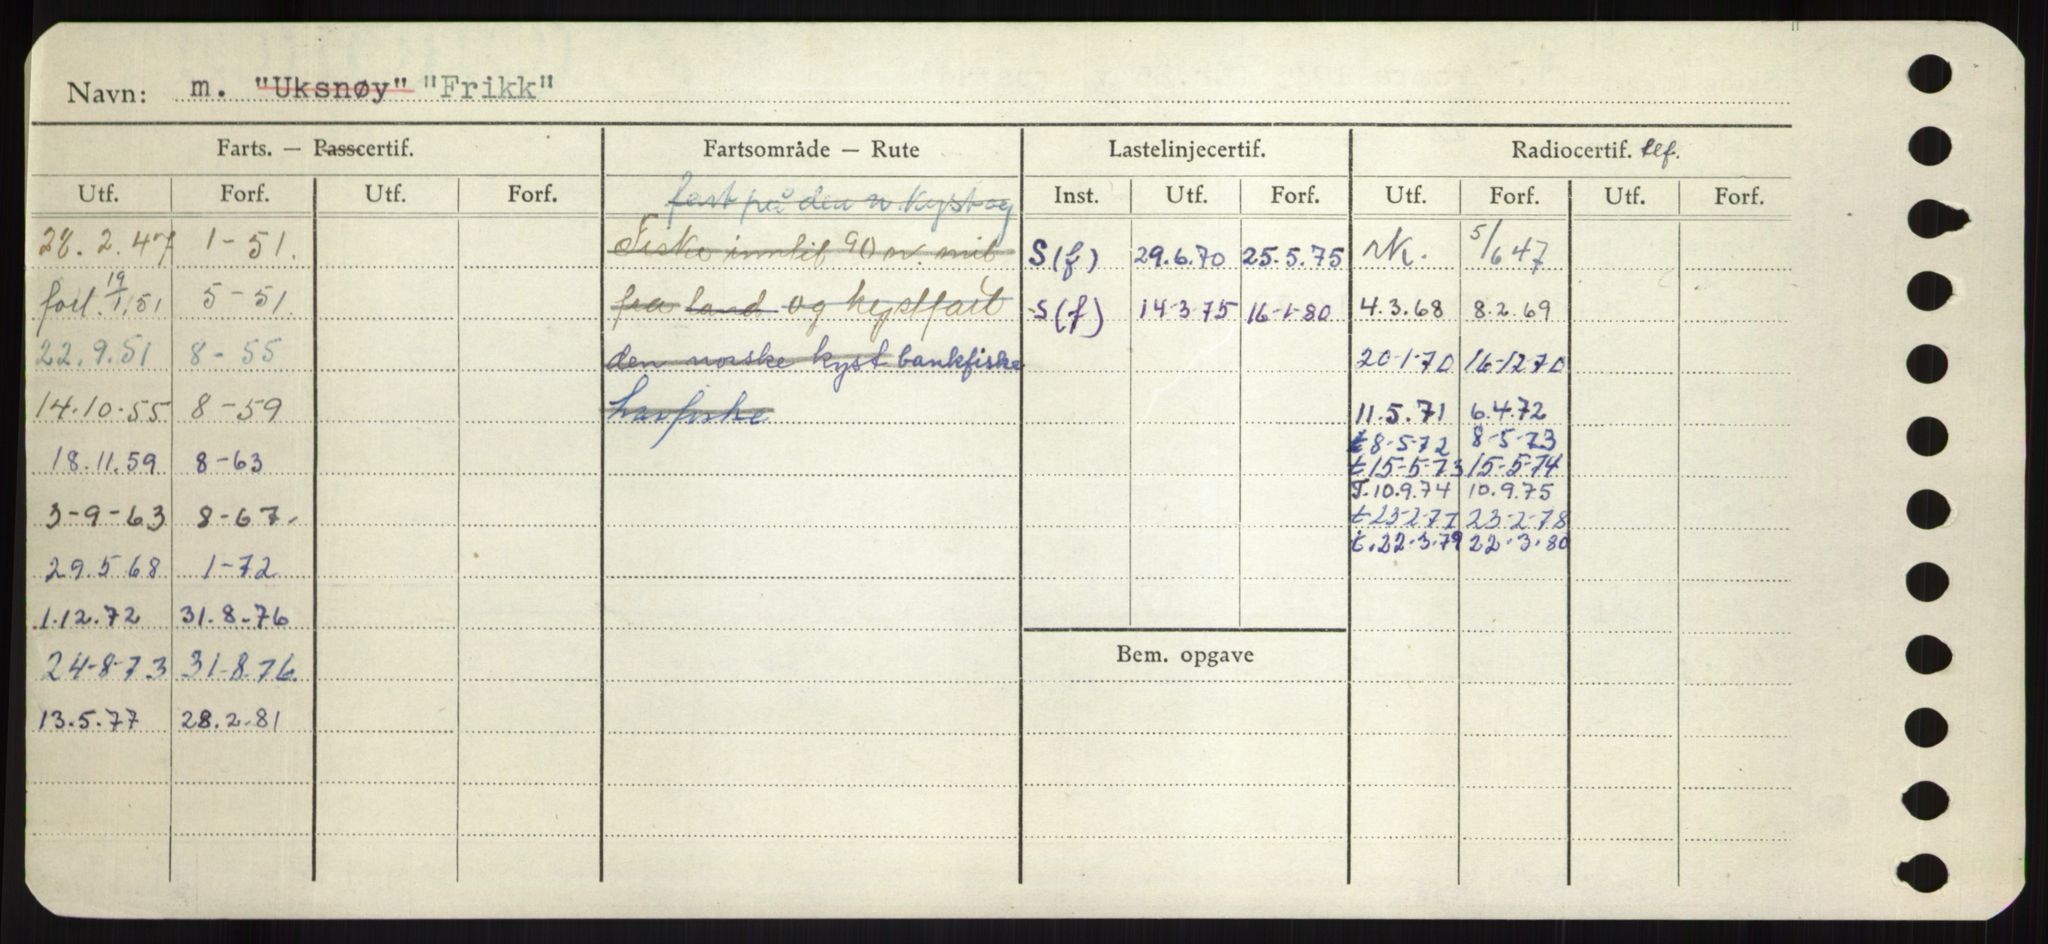 Navn: m. "Uksnøy" "Frikk"
Farts. — Passcertif. Fartsområde — Rute Lastelinjecertif. Radiocertif. tlf.
Utf. Forf. Utf. Forf. fart på den n. kyst og Inst. Utf. Forf. Utf. Forf. Utf. Forf.
28.2.47 1-51. Fiske inntil 90 n. mil S(f) 29.6.70 25.5.75 NK. 5/6 47
forl. 19/1.51 5-51. fra land og kystfart S(f) 14-3-75 16-1-80 4.3.68 8.2.69
22.9.51 8-55 den norske kyst bankfiske 20-1-70 16-12-70
14.10.55 8-59 havfiske 11.5.71 6.4.72
t 8-5-72 8-5-73
18.11.59 8-63 t 15-5-73 15-5-74
T. 10.9.74 10.9.75
3-9-63 8-67. t 23-2-77 23-2-78
t. 22.3.79 22.3.80
29.5 68 1-72
1.12.72 31.8.76
Bem. opgave
24-8-73 31-8.76.
13.5.77 28.2.81